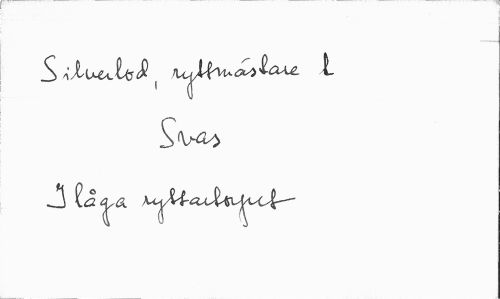 Silverlod, ryttmästare t
Svas
I låga ryttartorpet